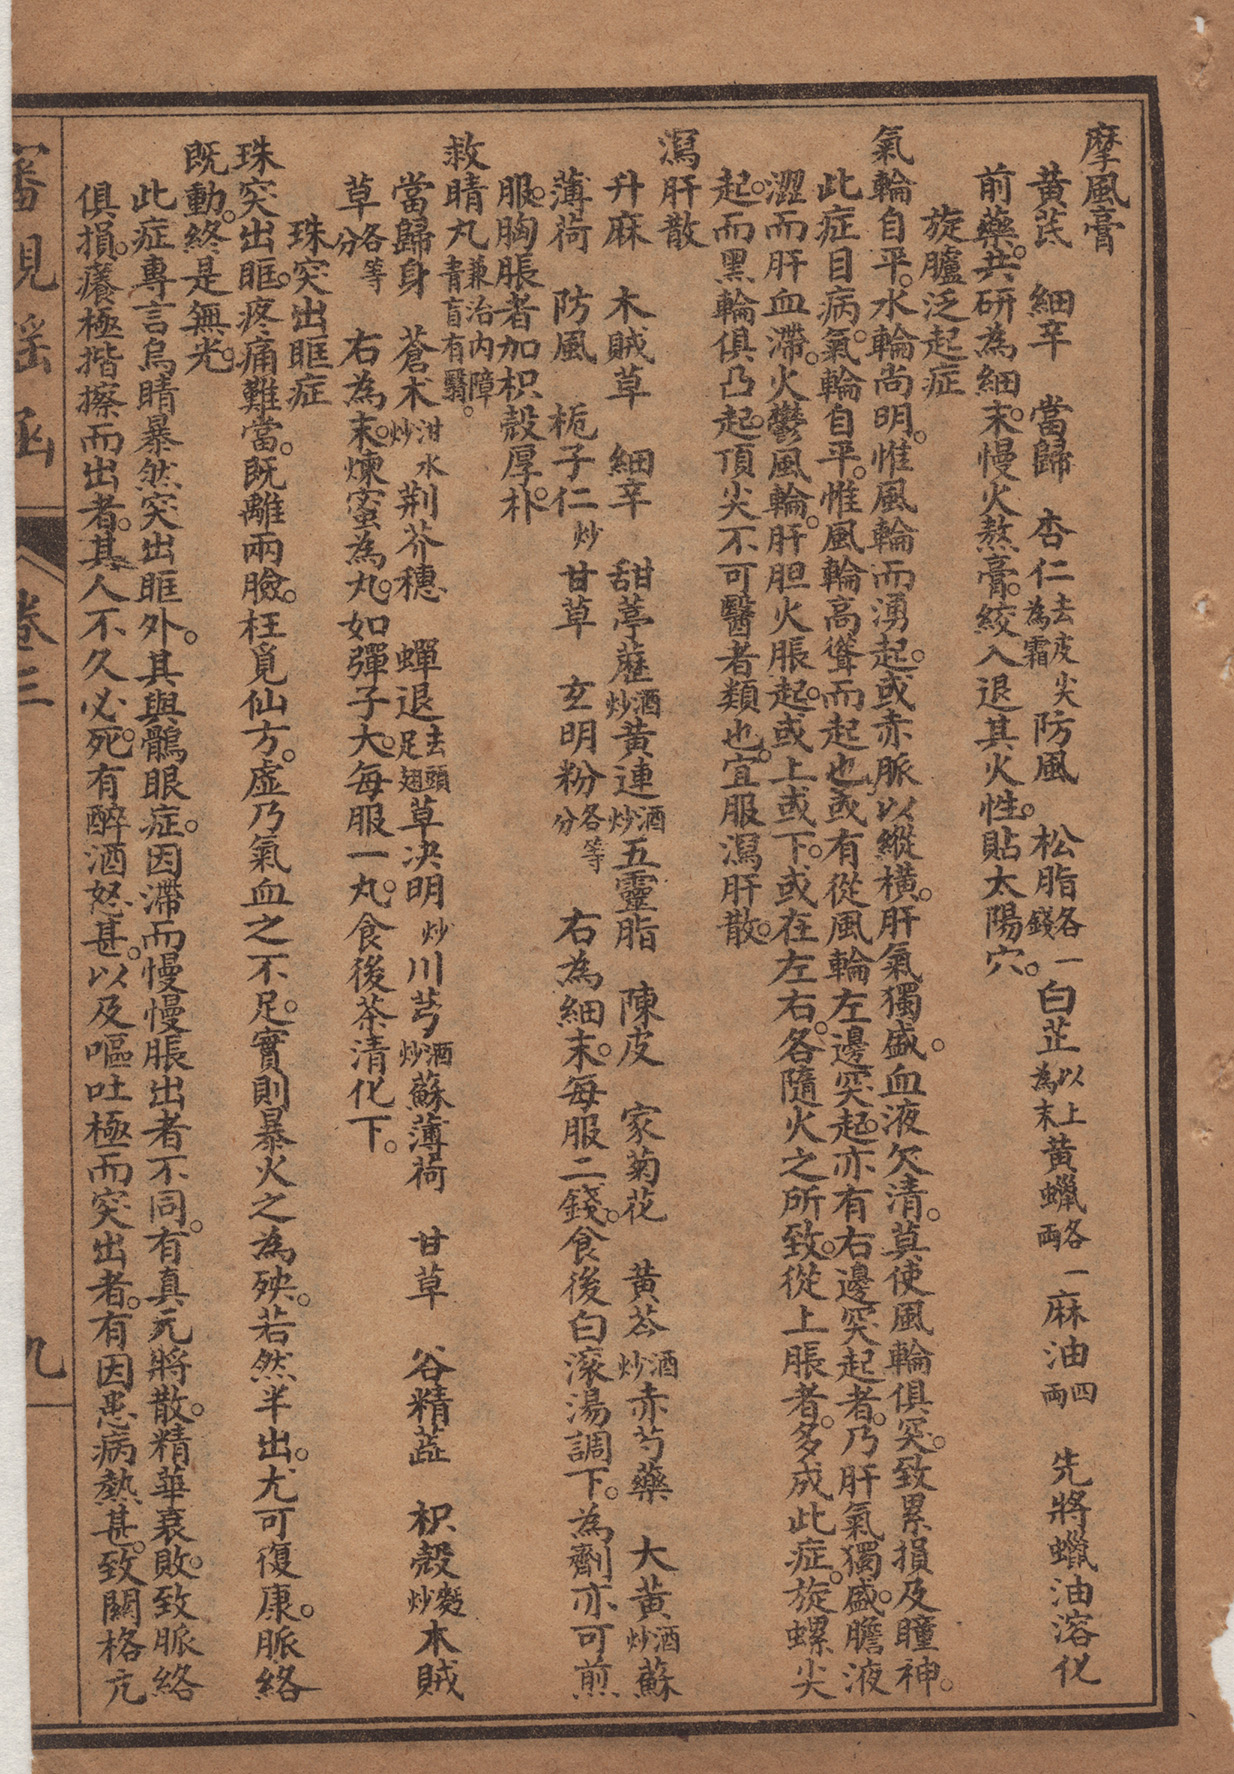 摩風膏
黃茋　細辛　當歸　杏仁去皮尖為霜防風　松脂各一錢白芷以上為末黃蠟各一兩麻油四兩　先將蠟油溶化
前藥。共研為細末。慢火熬膏。絞入退其火性。貼太陽穴。
旋臚泛起症
氣輪自平。水輪尚明。惟風輪而湧起。或赤脈以縱橫。肝氣獨盛。血液欠清。莫使風輪俱突。致累損及瞳神。
此症目病。氣輪自平。惟風輪高聳而起也。或有從風輪左邊突起。亦有右邊突起者。乃肝氣獨盛。膽液
澀而肝血滯。火鬱風輪。肝胆火脹起。或上或下。或在左右。各隨火之所致。從上脹者。多成此症。旋螺尖
起。而黑輪俱凸起。頂尖不可醫者類也。宜服瀉肝散。
瀉肝散
升麻　木賊草　細辛　甜葶藶酒炒黃連酒炒五靈脂　陳皮　家菊花　黃芩酒炒赤芍藥　大黃酒炒蘇
薄荷　防風　梔子仁炒甘草　玄明粉各等分　右為細末。每服二錢。食後白滾湯調下。為劑亦可煎
服。胸脹者加枳殼厚朴。
救睛丸兼治內障青盲有翳。
當歸身　蒼朮泔水炒荆芥穗　蟬退去頭足翅草決明炒川芎酒炒蘇薄荷　甘草　谷精蕋　枳殼麩炒木賊
草各等分　右為末。煉蜜為丸。如彈子大。每服一丸。食後茶清化下。
珠突出眶症
珠突出眶。疼痛難當。既離兩臉。枉覓仙方。虛乃氣血之不足。實則暴火之為殃。若然半出。尤可復康。脈絡
既動。終是無光。
此症專言烏睛暴然突出眶外。其與鶻眼症。因滯而慢慢脹出者不同。有真元將散。精華衰敗。致脈絡
俱損。癢極揩擦而出者。其人不久必死。有醉酒怒甚。以及嘔吐極而突出者。有因患病熱甚。致關格亢
審視瑤函　卷三　九